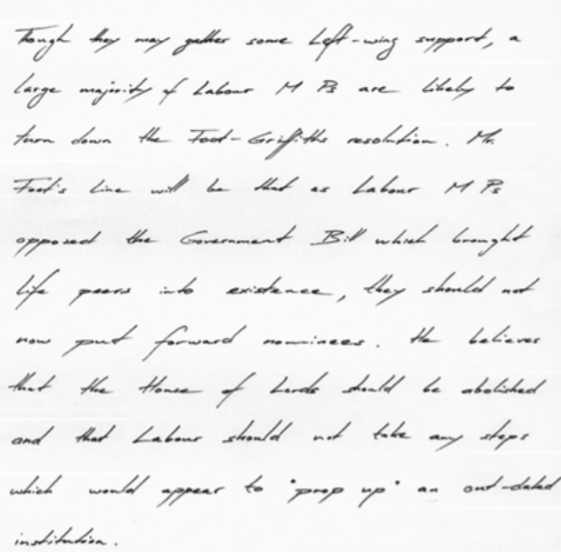 Though they may gather some Left-wing support, a
large majority of Labour M Ps are likely to
turn down the Foot-Griffiths resolution. Mr.
Foot's line will be that as Labour M Ps
opposed the Government Bill which brought
life peers into existence, they should not
now put forward nominees. He believes
that the House of Lords should be abolished
and that Labour should not take any steps
which would appear to "prop up" an out-dated
institution.